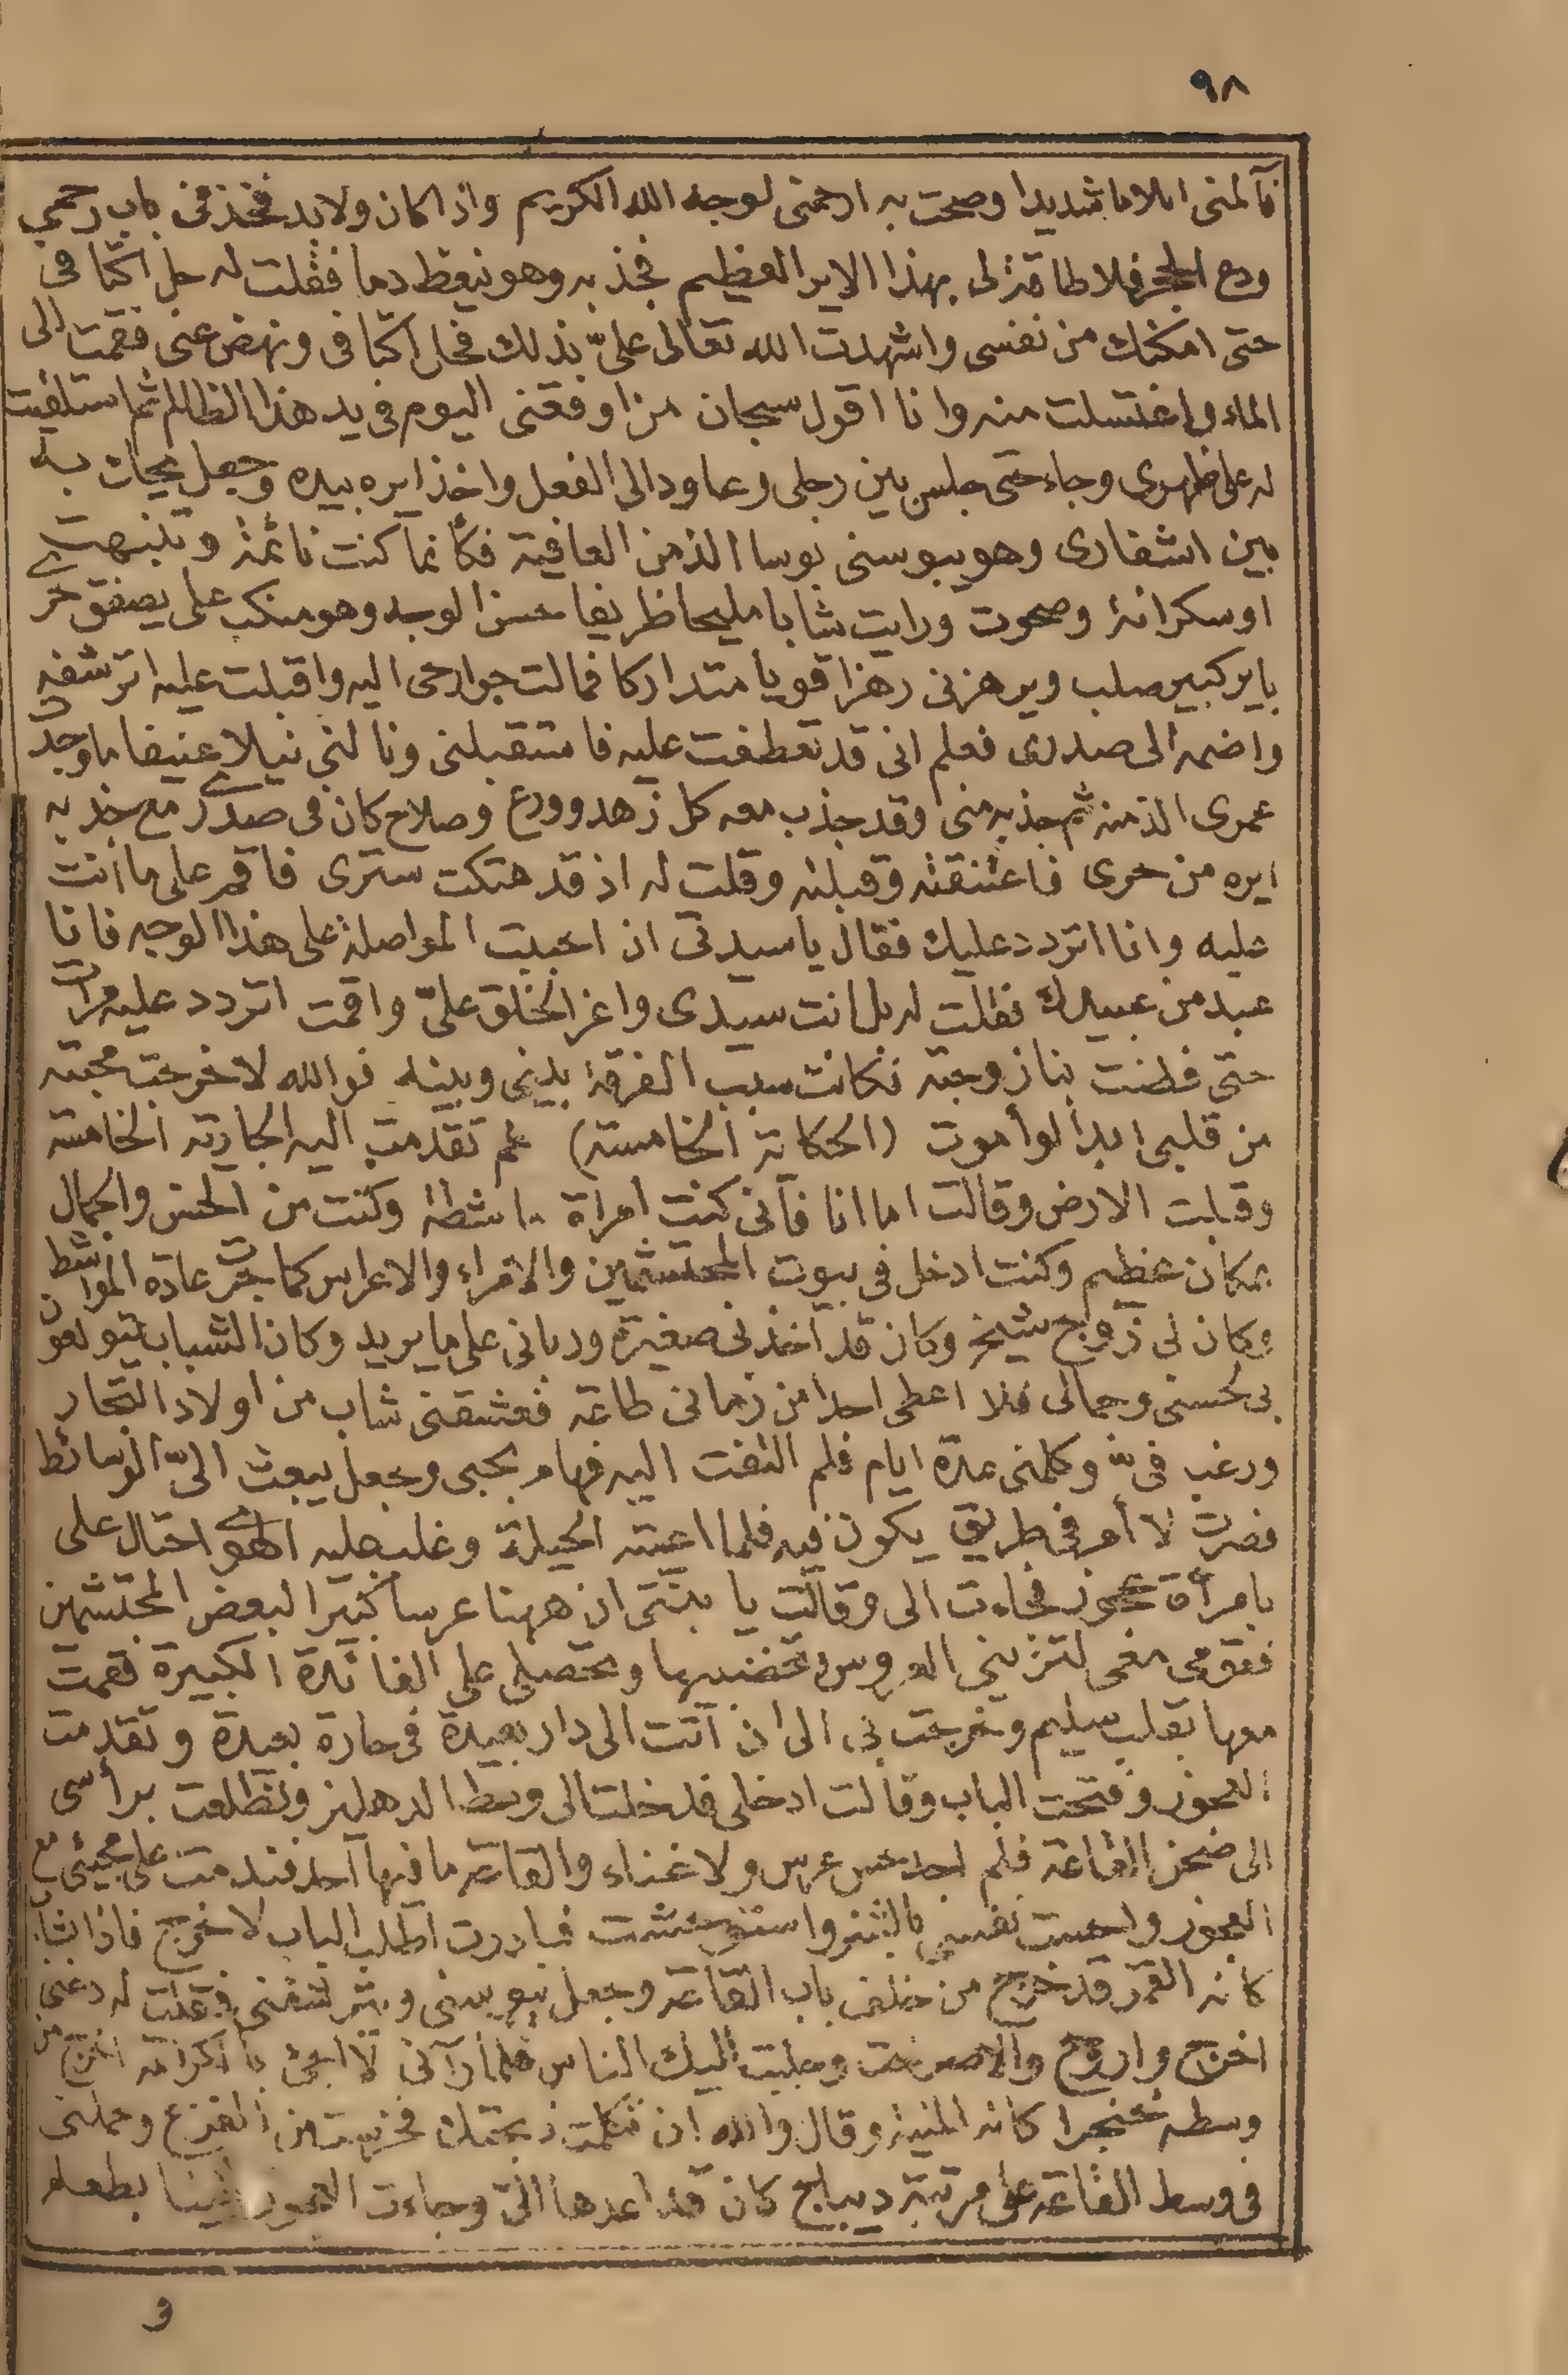 ٩٨
فآلمنى ايلاما شديدا وصحت به ارحمنى لوجه الله الكريم واذا كان ولابد فخذ فى باب رحمى
ودع الحجر فلا طاقة لى بهذا الاير العظيم فجذبه وهو ينقط دما فقلت له حل اكتافى
حتى امكنك من نفسى واشهدت الله تعالى علىّ بذلك فحل اكتافى ونهض عنى فقمت الى
الماء واغتسلت منه وانا اقول سبحان من اوقعنى اليوم فى يد هذا الظالم ثم استلقيت
له على ظهرى وجاء حتى جلس بين رجلى وعاود الى الفعل واخذ ايره بيده وجعل يحك به
بين اشفارى وهو يبوسنى بوسا الذ من العافية فكأنما كنت نائمة وتنبهت
او سكرانة وصحوت ورايت شابا مليحا ظريفا حسن الوجه وهو منكب على يصفق حرى
باير كبير صلب ويرهزنى رهزا قويا متداركا فمالت جوارحى اليه واقبلت عليه اترشفه
واضمه الى صدرى فعلم انى قد تعطفت عليه فاستقبلنى ونالنى نيلا عنيفا ما وجدت
عمرى الذ منه ثم جذبه منى وقد جذب معه كل زهد وورع وصلاح كان فى صدرى مع جذبه
ايره من حرى فاعتنقته وقبلته وقلت له اذ قد هتكت سترى فاقم على ما انت
عليه وانا اتردد عليك فقال يا سيدتى ان احببت المواصلة على هذا الوجه فانا
عبد من عبيدك فقلت له بل انت سيدى واعز الخلق علىّ واقمت اتردد عليه مرات
حتى فطنت بنا زوجته فكانت سبب الفرقة بينى وبينه فوالله لا خرجت محبته
من قلبى ابدا لو أموت (الحكاية الخامسة) ثم تقدمت اليه الجارية الخامسة
وقبلت الارض وقالت اما انا فآنى كنت امراة ماشطة وكنت من الحسن والجمال
بمكان عظيم وكنت ادخل فى بيوت المحتشمين والامراء والاعراس كما جرت عادة المواشط
وكان لى زوج شيخ وكان قد اخذنى صغيرة وربانى على ما يريد وكان الشباب يتولعون
بى لحسنى وجمالى فلا اعطى احدا من زمانى طاعة فعشقنى شاب من اولاد التجار
ورغب فىّ وكلمنى عدة ايام فلم التفت اليه فهام بحبى وجعل يبعث الىّ الوسائط
فصرت لا أمر فى طريق يكون فيه فلما اعيته الحيلة وغلب عليه الهوى احتال على
بامرأة عجوز فجاءت الى وقالت يا بنتى ان ههنا عرسا كبيرا لبعض المحتشمين
فقومى معى لتزينى العروس وتخضبيها وتحصلى على الفائدة الكبيرة فقمت
معها بقلب سليم وخرجت بى الى ان آتت الى دار بعيدة فى حارة بعيدة وتقدمت
العجوز وفتحت الباب وقالت ادخلى فدخلت الى وسط الدهليز وتطلعت برأسى
الى صحن القاعة فلم اجد حس عرس ولا غناء والقاعة ما فيها احد فندمت على مجيئى مع
العجوز واحست نفسى بالشر واستوحشت فبادرت اطلب الباب لاخرج فاذا بشاب
كانه القمر قد خرج من خلف باب القاعة وجعل يبوسنى ويترشفنى فقلت له دعنى
اخرج واروح والا صرخت وجلبت اليك الناس فلما رآنى لا اجئ بالكرامة اخرج من
وسطه خنجرا كانه المنية وقال والله ان تكلمت ذبحتك فخرست من الفزع وحملنى
فى وسط القاعة على مرتبة ديباج كان قد اعدها الىّ وجاءت العجوز الينا بطعام
و